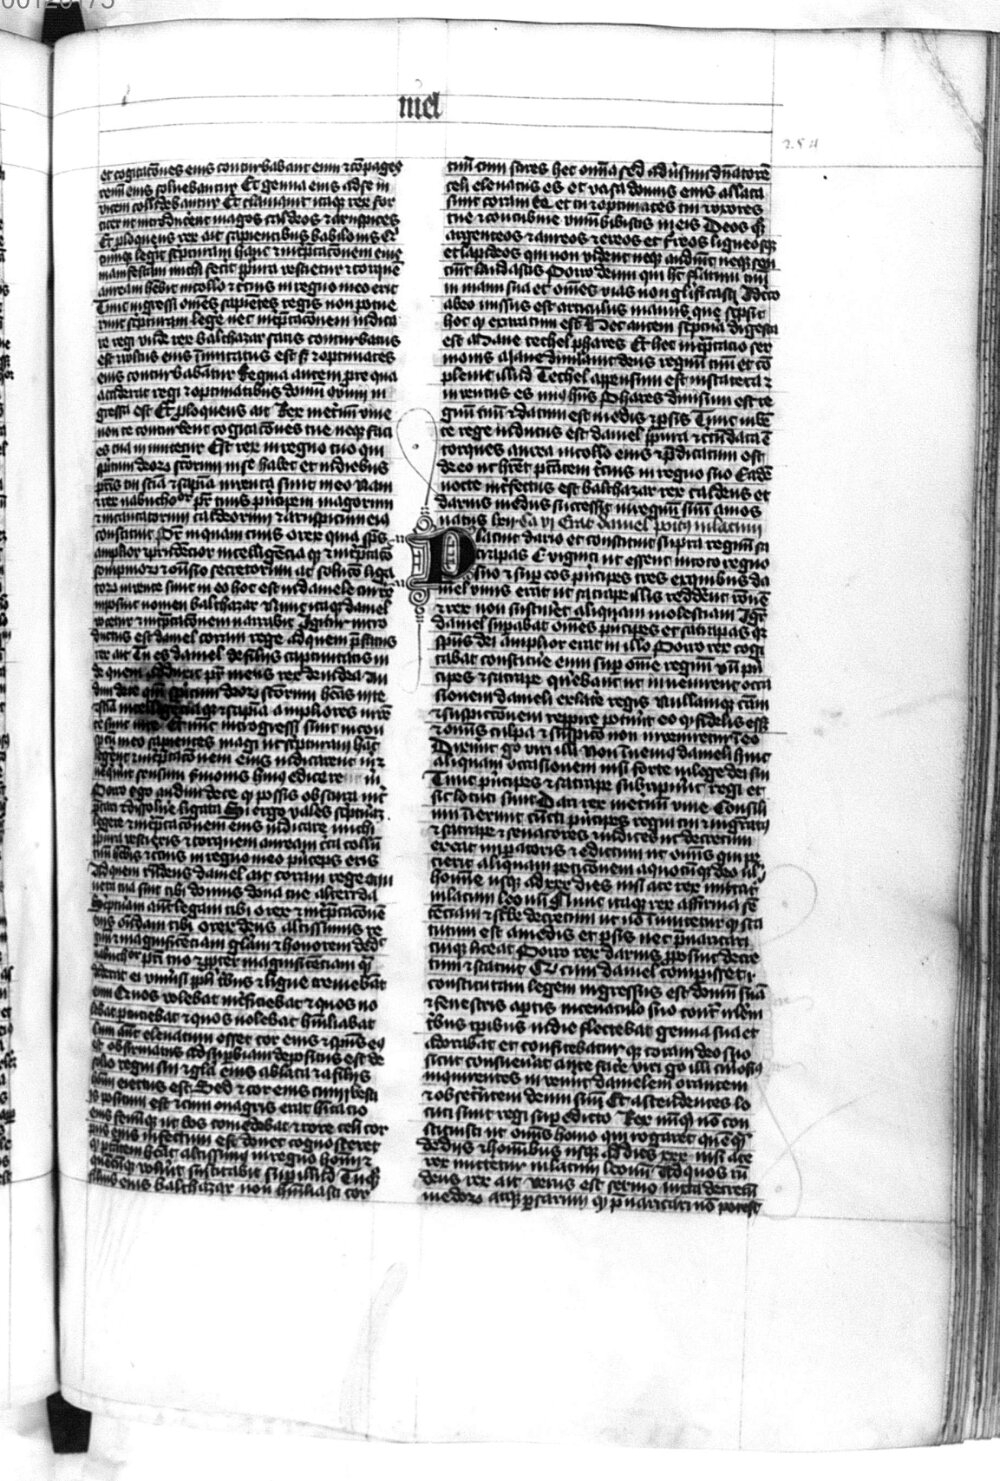 00126175
niel
254
et cogitac̄ones eius conturbabant eum ⁊ cōpages
renū eius soluebantur Et genua eius ad se in
uicem collidebantur Et clamauit itaqꝫ rex for
titer ut introducerēt magos caldeos ⁊ aruspices
Et ꝓloquens rex ait sapientibus babilonis Qͥ
cunqꝫ legerit scͥpturam hanc ⁊ int̄pretac̄onem eius
manifestam michi fecerit purpura uestietur ⁊ torquē
auream habebit in collo ⁊ tercius in regno meo erit
Tunc ingressi om̄es sapientes regis non potue
runt scͥpturam legere nec int̄pretac̄onem indica
re regi vnde rex balthazar satis conturbatus
est ⁊ uultus eius inmutatus est sꝫ ⁊ optimates
eius conturbabantur Regina autem pro re que
acciderat regi ⁊ optimatibus domum conuiuii in
gressa est Et ꝓloquens ait Rex in et̄num viue
non te conturbent cogitac̄ones tue neqꝫ faci
es tua inmutetur Est vir in regno tuo qui
spiritum deorꝝ sanctorum in se habet et in diebus
patris tui scientia ⁊ sapientia inuente sunt in eo Nam
⁊ rex nabuchodonosor pater tuus principem magorum
⁊ incantatorum caldeorum ⁊ aruspicum eum
constituit Pater inquam tuus o rex quia spiritus
amplior ⁊ prudencior intelligencia qꝫ ⁊ int̄pretatio
sompniorꝝ ⁊ ostensio secretorum ac solutio liga
torꝝ inuente sunt in eo hoc est in daniele cui rex
imposuit nomen balthazar Nunc itaqꝫ daniel
uocetur ⁊ int̄pretac̄onem narrabit Igitur intro
ductus est daniel coram rege ad quem prefatus
rex ait Tu es daniel de filiis captiuitatis iu
de quem adduxit pater meus rex de iudea Au
diui de te quoniam spiritum deorꝝ sanctorum habeas ⁊ scie
tia intelligentia qꝫ ⁊ sapientia ampliores inuen
te sunt in te Et nunc introgressi sunt in con
spectu meo sapientes magi ut scͥpturam hanc
legerent ⁊ int̄pretac̄onem eius indicarent michi ⁊
nequiuerunt sensum sermonis huius edicere
Porro ego audiui de te qꝫ possis obscura int̄
pretari ⁊ dissoluere ligata Si ergo vales scͥpturam
legere ⁊ int̄pretac̄onem eius indicare michi
purpura uestieris ⁊ torquem auream circa collum
tuum habebis ⁊ tercius in regno meo princeps eris
Ad quem respondens daniel ait coram rege mu
nera tua sint tibi ⁊ dona domus tue alteri da
Scͥpturam autem legam tibi o rex ⁊ int̄pretac̄onem
eius ostendam tibi O rex deus altissimus re
gnum ⁊ magnificenciam gloriam ⁊ honorem dedit
nabuchodonosor patri tuo ⁊ propter magnificenciam quam
dederat ei vniuersi populi tribus ⁊ lingue tremebant
eum Quos volebat interficiebat ⁊ quos uo
lebat percutiebat ⁊ quos uolebat humiliabat
Cum autem eleuatum esset cor eius ⁊ spiritus eius
obfirmatus ad superbiam depositus est de
solio regni sui ⁊ gloria eius ablata est a filiis
hominum eiectus est Sed ⁊ cor eius cum bestiis
positum est ⁊ cum onagris erat habitatio
eius fenum qꝫ ut bos comedebat ⁊ rore celi cor
pus eius infectum est donec cognosceret
qꝫ potestatem haberet altissimus in regno hominum ⁊
quemcunqꝫ voluerit suscitabit super illud Tu qꝫ
filius eius balthazar non humiliasti cor
tuum cum scires hec omnia sed aduersum dominatorē
celi eleuatus es et uasa domus eius allata
sunt coram te et tu ⁊ optimates tui ⁊ vxores
tue ⁊ concubine vinum bibistis in eis Deos qꝫ
argenteos ⁊ aureos ⁊ ereos et ferreos ligneos qꝫ
et lapideos qui non vident neqꝫ audiunt neqꝫ sen
ciunt laudastis Porro deum qui habet flatum tuum
in manu sua et omnes vias non glorificasti Idcirco
ab eo missus est articulus manus que scripsit
hoc qꝫ exaratum est Hec autem scͥptura digesta
est Mane techel phares Et hec int̄pretacio ser
monis Mane dimulauit deus regnum tuum et cō
pleuit illud Techel appensum est in statera ⁊
inuentus es minus habens Phares diuisum est re
gnum tuum ⁊ datum est medis ⁊ persis Tunc iuben
te rege indutus est daniel purpura ⁊ circumdata ē
torques aurea in collo eius ⁊ predicatum est
de eo ut haberet potestatem tercius in regno suo Eadē
nocte interfectus est balthazar rex caldeus et
darius medus successit in regnum suum annos
natus lxii
Placuit dario et constituit supra regnum sa
trapas C viginti ut essent in toto regno
suo ⁊ super eos principes tres ex quibus da
niel vnus erat ut satrape illis redderent racionē
⁊ rex non sustineret aliquam molestiam Igitur
daniel superabat omnes principes et satrapas quia
spiritus dei amplior erat in illo Porro rex cogi
tabat constituere eum super omne regnum vnde prin
cipes ⁊ satrape querebant ut inuenirent occa
sionem danieli ex latere regis Nullamqꝫ causam
⁊ suspicionem repperire potuerunt eo qꝫ fidelis esset
⁊ omnis culpa ⁊ suspicio non inueniretur in eo
Dixerunt ergo viri illi Non inueniemus danieli huic
aliquam occasionem nisi forte in lege dei sui
Tunc principes ⁊ satrape surripuerunt regi et
sic locuti sunt Dari rex in eternum viue Consili
um inierunt cuncti principes regni tui ⁊ magistratus
⁊ satrape ⁊ senatores ⁊ iudices ut decretum
exeat imperatoris ⁊ edictum ut omnis qui pe
cierit aliquam peticionem a quocunqꝫ deo uel
homine usqꝫ ad xxx dies nisi a te rex mittatur
in lacum leonum Nunc itaqꝫ rex affirma sen
tenciam ⁊ scribe decretum ut non inmutetur qꝫ sta
tutum est a medis et persis nec preuaricari
cuiqꝫ liceat Porro rex darius proposuit decre
tum ⁊ statuit Quod cum daniel comperisset
constitutam legem ingressus est domum suā
⁊ fenestris apertis in cenaculo suo contra iherusalem
tribus temporibus in die flectebat genua sua et
adorabat et confitebatur qꝫ coram deo suo
sicut consueuerat ante facere viri ergo illi curiosius
inquirentes inuenerunt danielem orantem
⁊ obsecrantem deum suum Et accedentes lo
cuti sunt regi super edicto Rex numquid non con
stituisti ut omnis homo qui rogaret quemquam
de diis ⁊ hominibus usqꝫ ad dies xxx nisi a te
rex mitteretur in lacum leonum Ad quos respon
dens rex ait verus est sermo iuxta decretum
medorꝝ atqꝫ persarum qꝫ preuaricari non potest